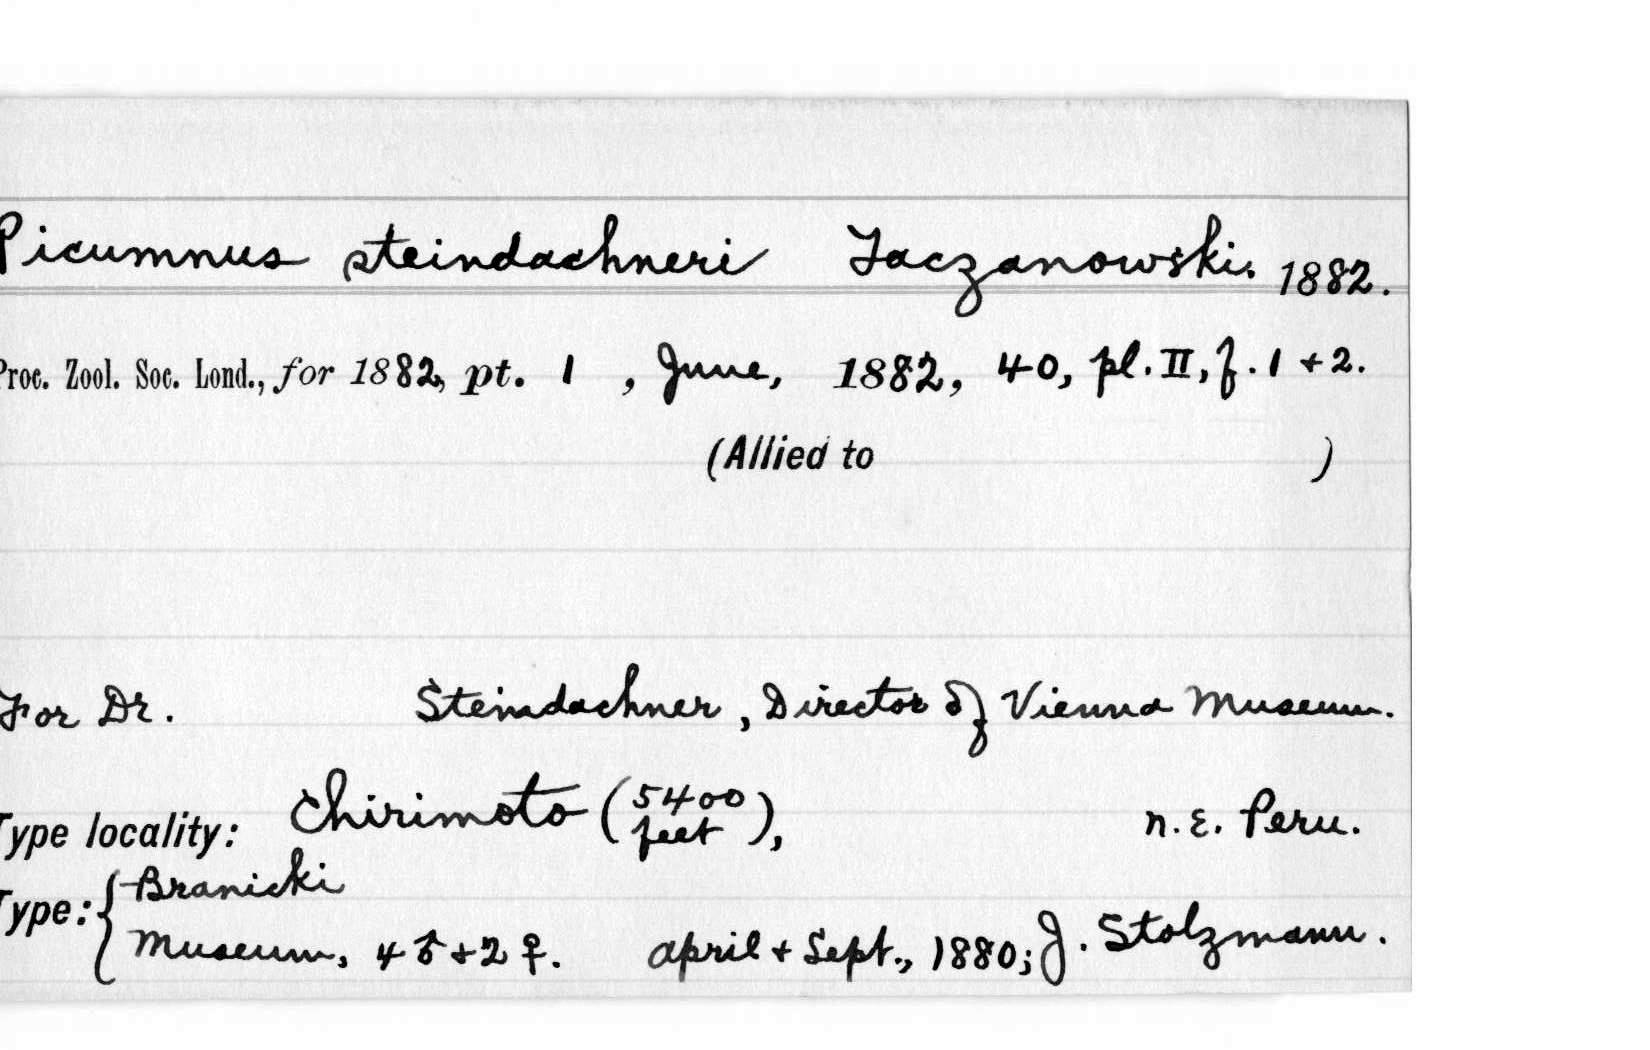 Picumnus steindachneri Taczanowski. 1882.
Proc. Zool. Soc. Lond., for 1882, pt. 1, June, 1882, 40, pl. II, f. 1 + 2.
(Allied to )
For Dr. Steindachner, Director of Vienna Museum.
Type locality: Chirimoto (5400 feet), N. E. Peru.
Type: { Branicki
Museum, 4 ♂ + 2 ♀. April + Sept., 1880; J. Stolzmann.